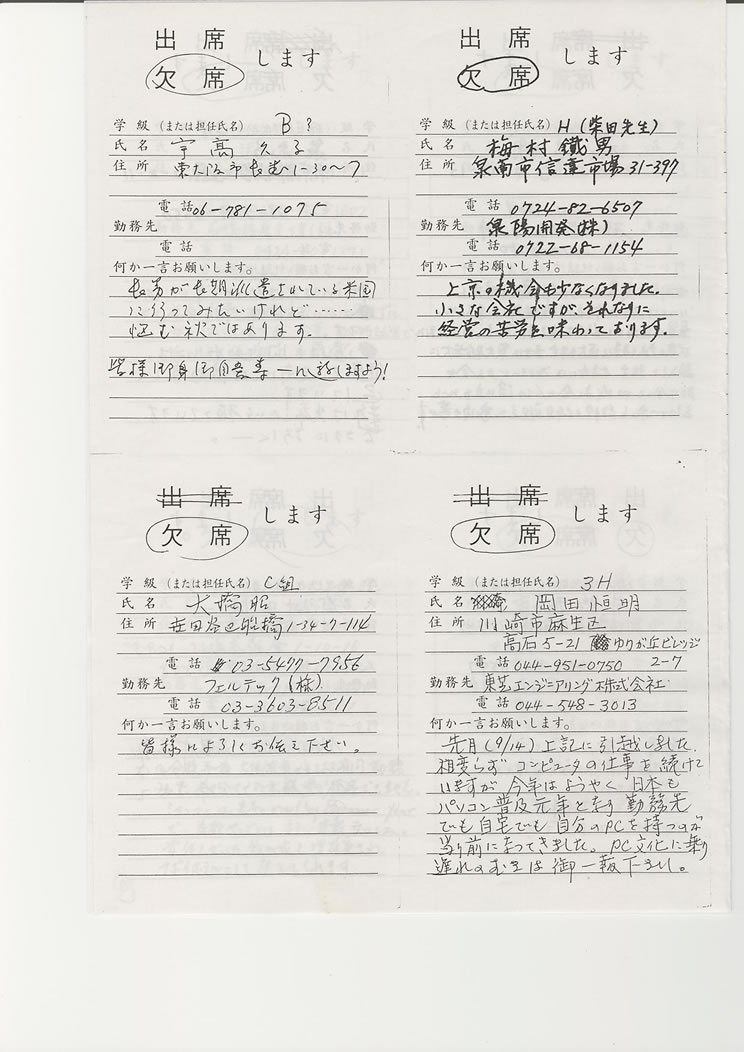 出席
欠席 します
学級 (または担任氏名) B?
氏名 宇高久子
住所 東大阪市長堂1-30~7
電話 06-781-1075
勤務先
電話
何か一言お願いします。
長男が長期派遣されている米国
に行ってみたいけれど……
悩む秋ではあります。
皆様御身御自愛

出席
欠席 します
学級 (または担任氏名) H (柴田先生)
氏名 梅村鐵男
住所 泉南市信達市場31-397
電話 0724-82-6507
勤務先 泉陽開発(株)
電話 0722-68-1154
何か一言お願いします。
上京の機会も少なくなりました。
小さな会社ですが、それなりに
経営の苦労を味わっております。

出席
欠席 します
学級 (または担任氏名) C組
氏名 大橋昭
住所 世田谷区船橋1-34-7-114
電話 03-5477-7956
勤務先 フェルテック(株)
電話 03-3603-8511
何か一言お願いします。
皆様によろしくお伝え下さい。

出席
欠席 します
学級 (または担任氏名) 3H
氏名 岡田恒明
住所 川崎市麻生区
高石5-21 ゆりが丘ビレッジ
電話 044-951-0750 2-7
勤務先 東芝エンジニアリング株式会社
電話 044-548-3013
何か一言お願いします。
先月(9/14)上記に引越しました。
相変らずコンピュータの仕事を続けて
いますが今年はようやく日本も
パソコン普及元年となり勤務先
でも自宅でも自分のPCを持つのが
当り前になってきました。PC文化に乗り
遅れのむきは御一報下さい。